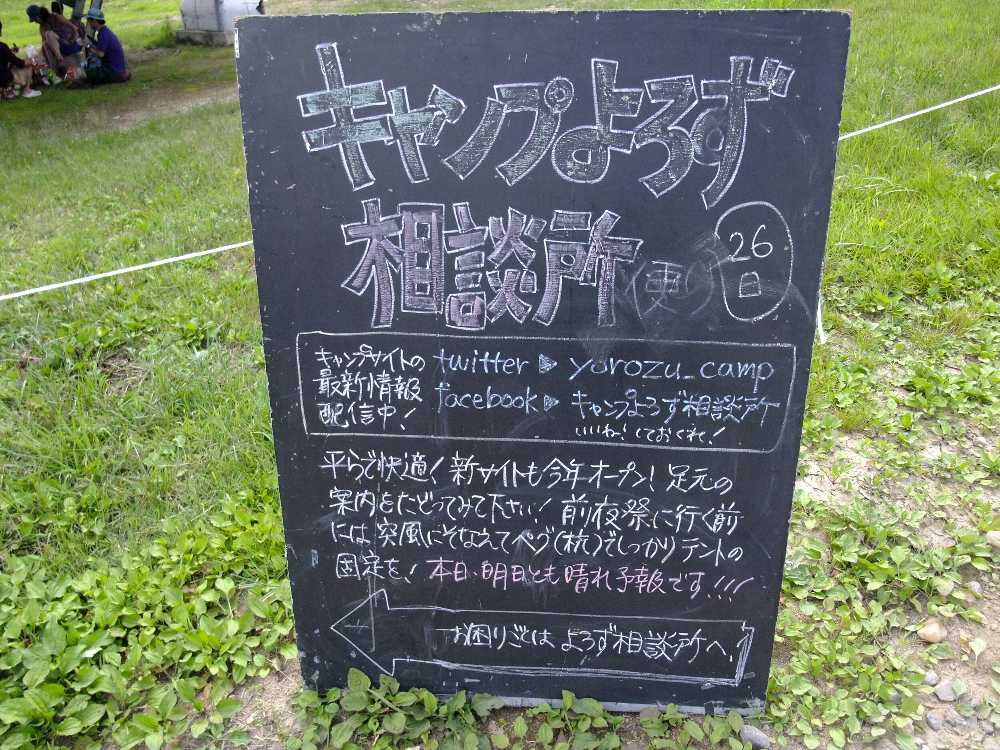 キャンプよろず
相談所便り
26
日
キャンプサイトの
最新情報
配信中!
twitter ▷ yorozu_camp
facebook ▷ キャンプよろず相談所
いいね!しておくれ!
平らで快適!新サイトも今年オープン!足元の
案内をたどってみて下さい!前夜祭に行く前
には突風にそなえてペグ(杭)でしっかりテントの
固定を!本日、明日とも晴れ予報です!!!
お困りごとはよろず相談所へ!